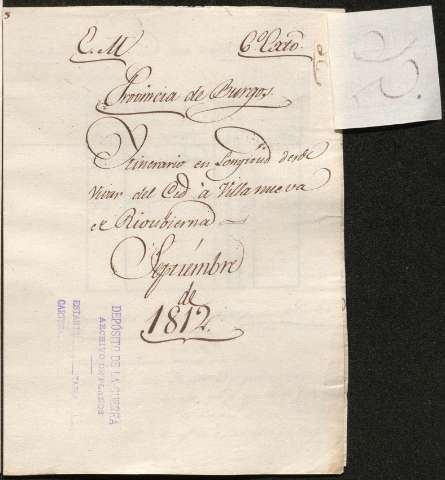 E. M. 6º Exto.
Provincia de Burgos.
Ytinerario en Longitud desde
Vivar del Cid à Villanueva
de Rioubierna
Septiémbre
de
1812.
DEPÓSITO DE LA GUERRA
ARCHIVO DE PLANOS
ESTANTE TABLA
CARTERA